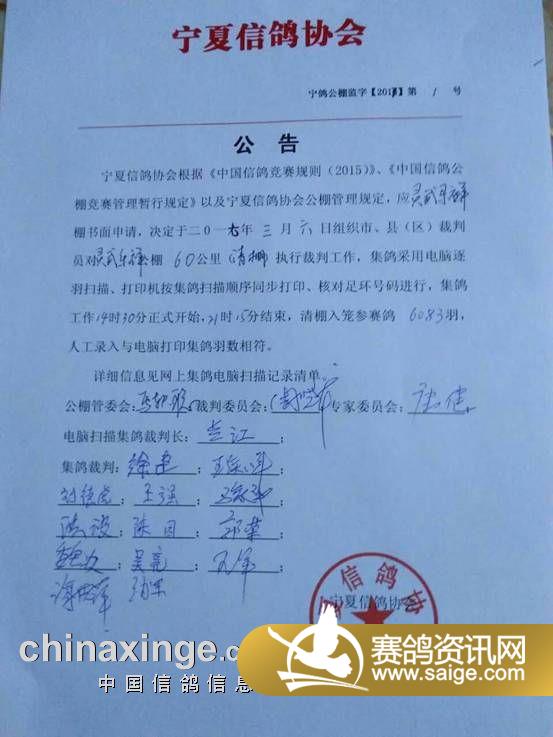 宁夏信鸽协会
宁鸽公棚监字【2017】第 1 号
公 告
宁夏信鸽协会根据《中国信鸽竞赛规则（2015）》、《中国信鸽公
棚竞赛管理暂行规定》以及宁夏信鸽协会公棚管理规定，应灵武
棚书面申请，决定于二0一七年三月六日组织市、县（区）裁判
员对灵武 公棚 60公里（清棚）执行裁判工作，集鸽采用电脑逐
羽扫描、打印机按集鸽扫描顺序同步打印、核对足环号码进行，集鸽
工作14时30分正式开始，21时15分结束，清棚入笼参赛鸽 6083羽，
人工录入与电脑打印集鸽羽数相符。
详细信息见网上集鸽电脑扫描记录清单。
公棚管委会： 裁判委员会： 专家委员会：
电脑扫描集鸽裁判长： ；
集鸽裁判：徐建；
王强；
陈同；
吴亮；
信鸽协
宁夏信鸽协会
chinaxinge.c
中国信鸽信息
赛鸽资讯网
www.saige.com